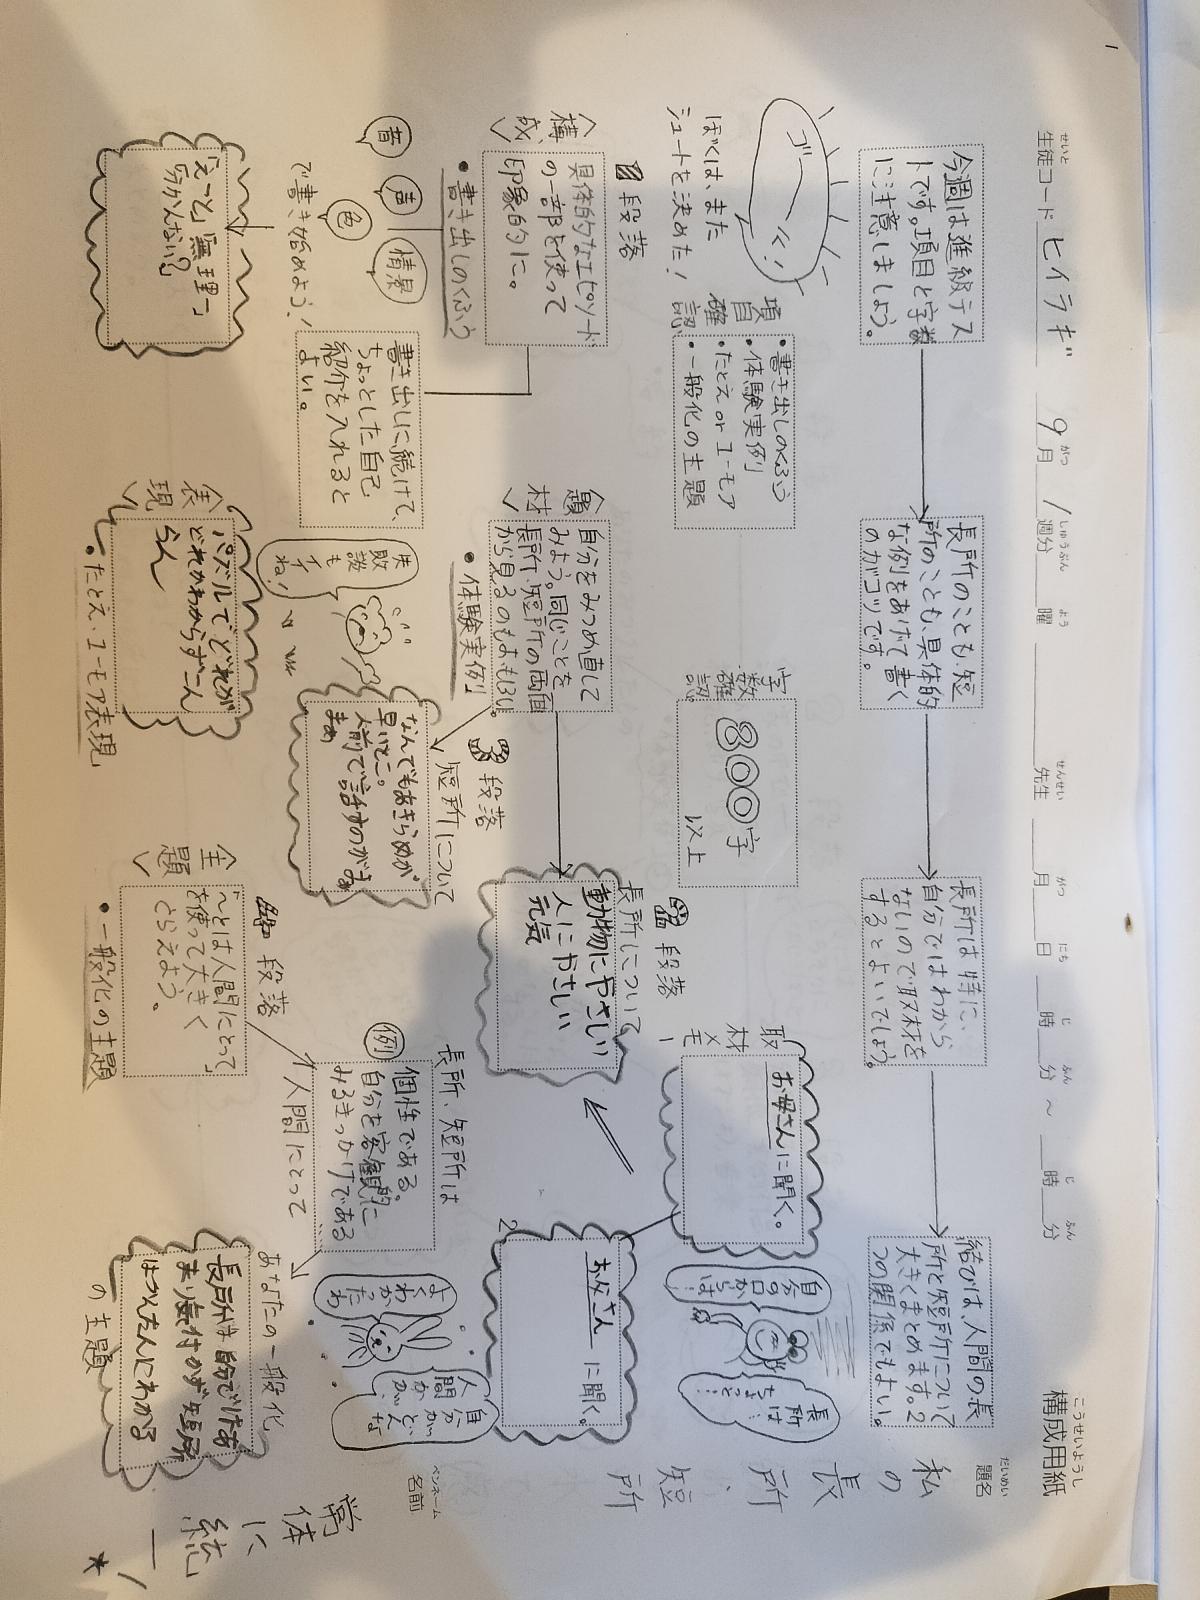 構成用紙
こうせいようし
生徒コード ヒイラギ 9月1週分 曜 先生 月 日 時 分 ～ 時 分
せいと がつ しゅうぶん よう せんせい がつ にち じ ふん じ ふん
題名
だいめい
私の長所、短所
名前
ペンネーム
常体に統一!
★
今週は進級テス
トです。項目と字数
に注意しましょう。
長所のことも、短
所のことも、具体的
な例をあげて書く
のがコツです。
長所は特に、
自分ではわから
ないので取材を
するとよいでしょう。
結びは、人間の長
所と短所について
大きくまとめます。2
つの関係でもよい。
ゴーール!!
ぼくは、また
シュートを決めた!
項目確認
・書き出しのくふう
・体験実例
・たとえ or ユーモア
・一般化の主題
字数確認
800字
以上
取材メモ
お母さんに聞く。
お父さんに聞く。
自分の口
からは…
長所は
ちょっと…
1段落
〈構成〉
具体的なエピソード
の一部を使って
印象的に。
・書き出しのくふう
音
声
色
情景
で書き始めよう!
「えーと、無理ー、
分かんない?」
書き出しに続けて、
ちょっとした自己
紹介を入れると
よい。
〈題材〉
自分をみつめ直して
みよう。同じことを
長所、短所の両面
から見るのもおもしろい。
・体験実例
段落
長所について
動物にやさしい
人にやさしい
元気
段落
短所について
なんでもあきらめが
早いとこ。
人前で話すのが
失敗談も
イイね!
〈表現〉
パズルでどれが
どれかわからずこん
らん
・たとえ、ユーモア表現
段落
〈主題〉
「〜とは人間にとって」
を使って大きく
とらえよう。
・一般化の主題
長所、短所は
例
個性である。
自分を客観的に
みるきっかけである
人間にとって
よくわかったわ
自分がどんな
人間かが
あなたの一般化
の主題
長所は自分ではあ
まり気付かず短所
はかんたんにわかる